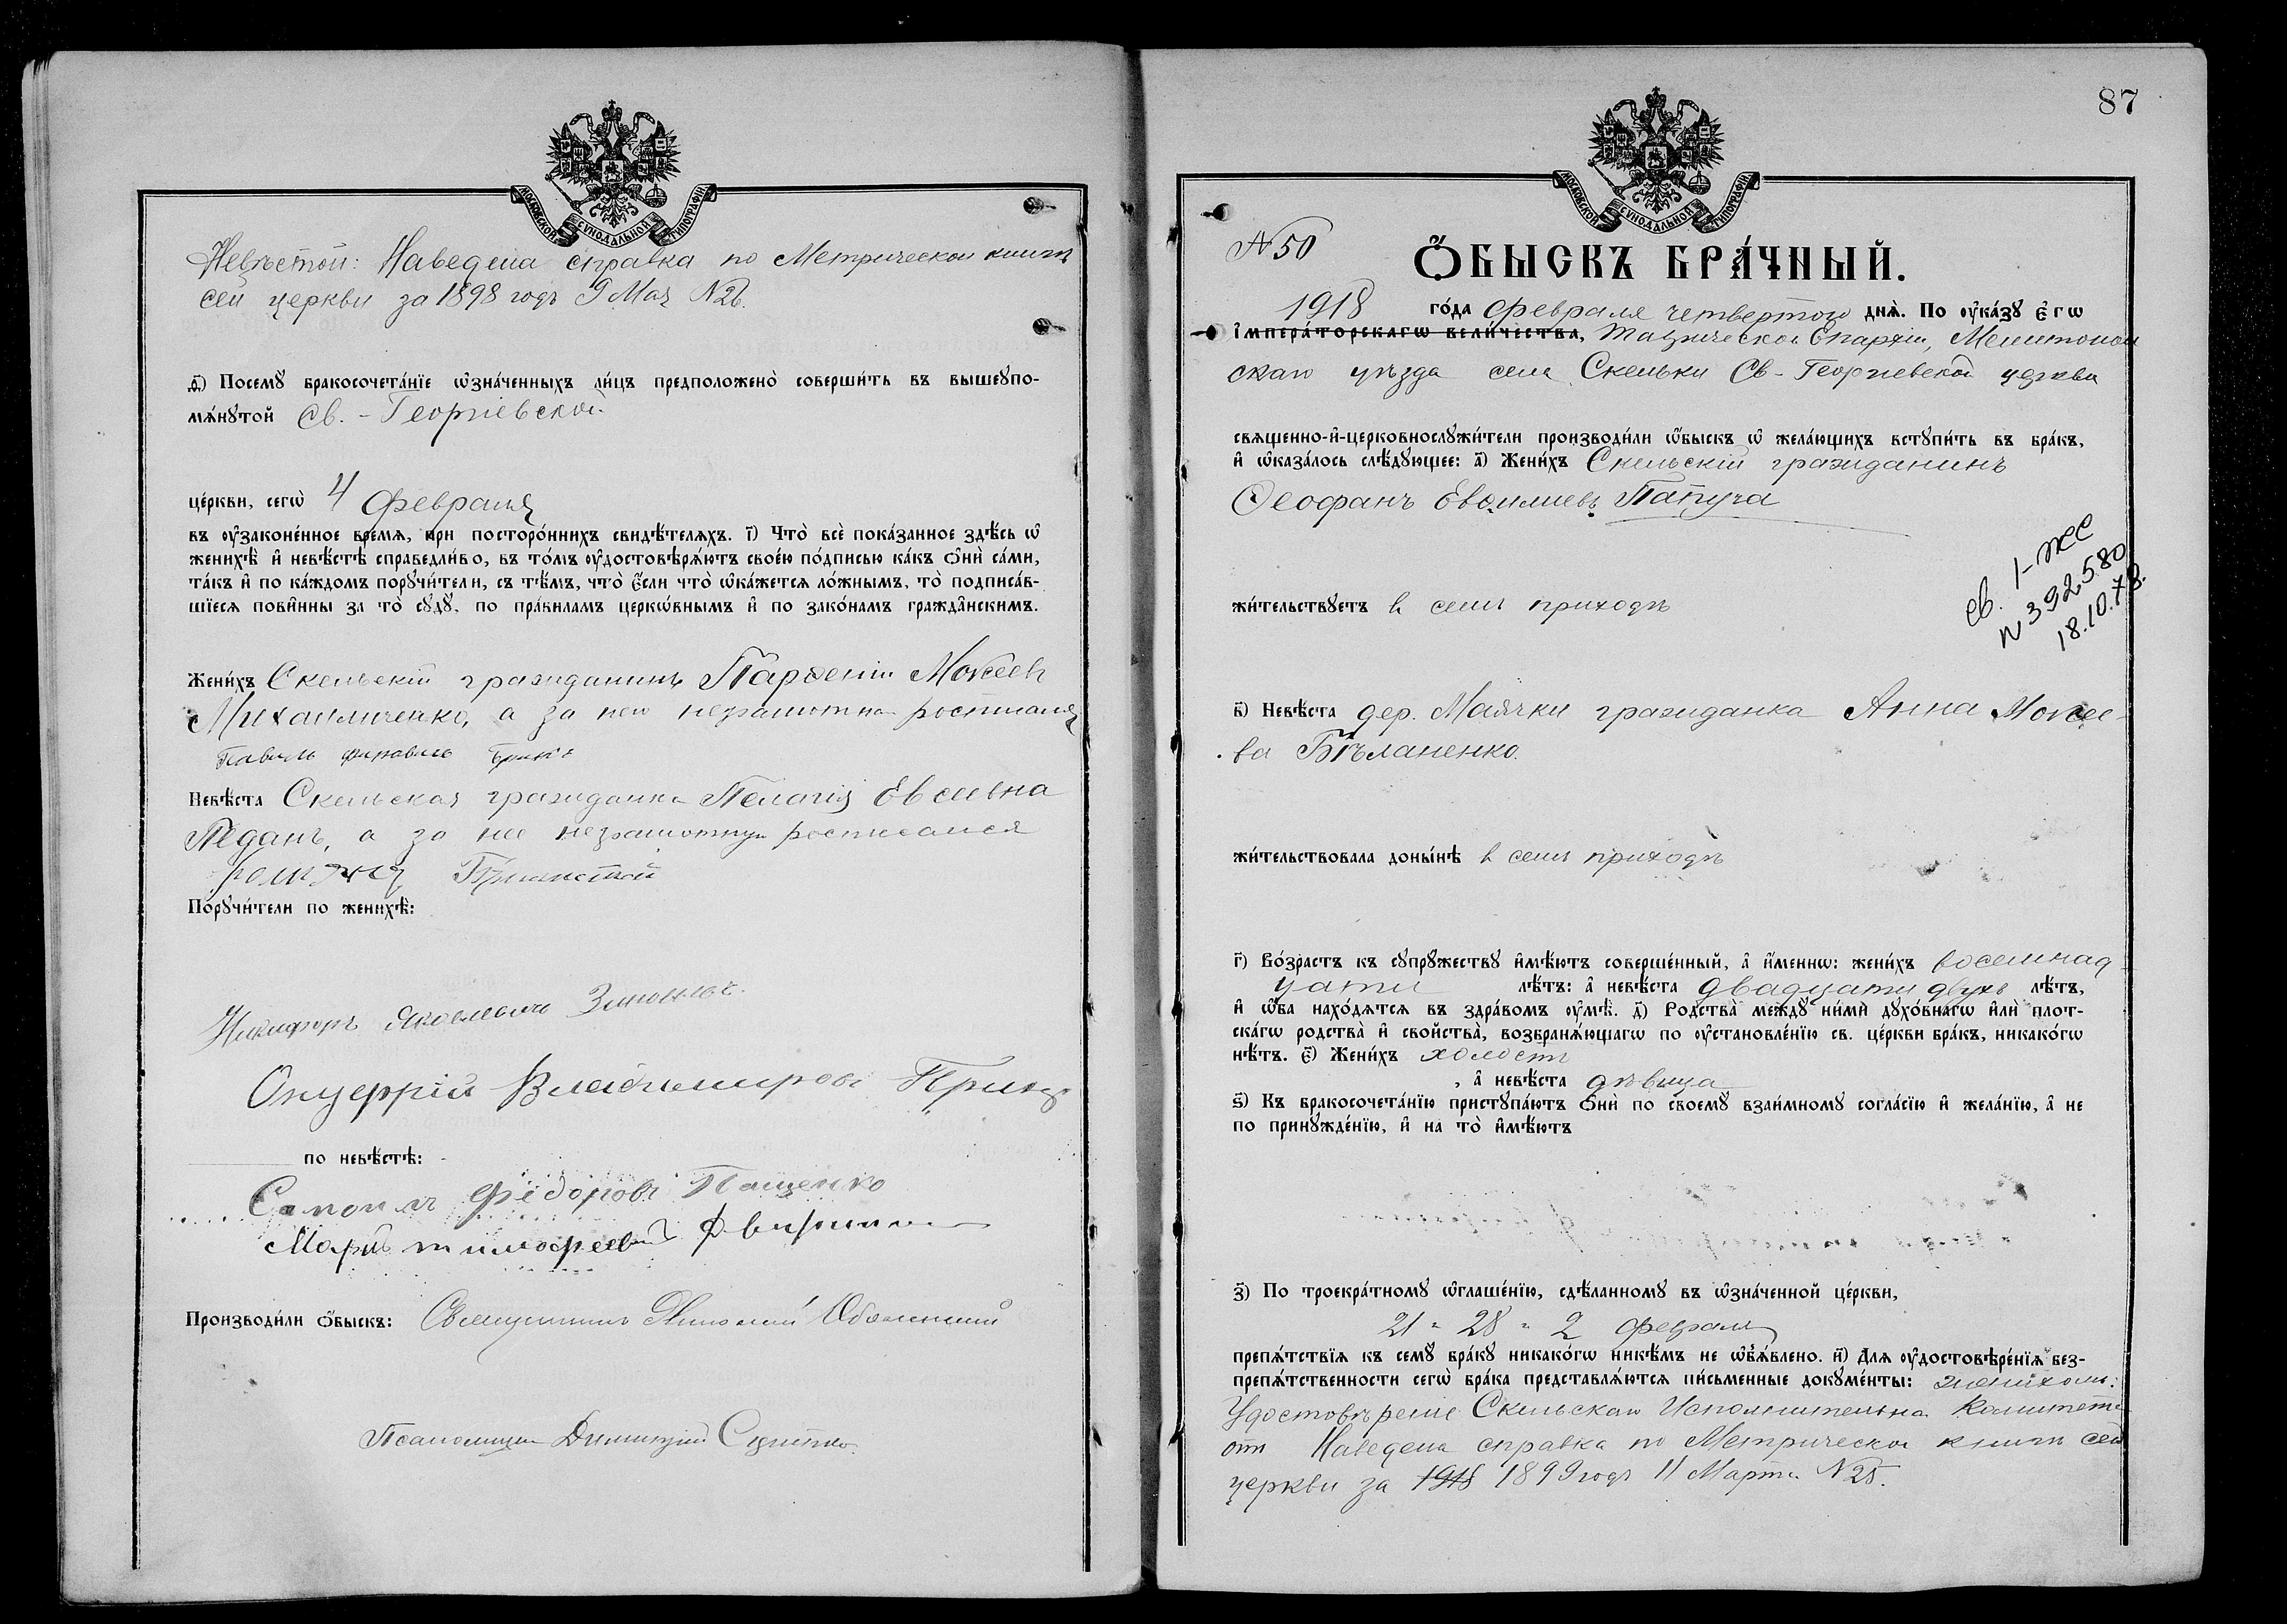 МОСКОВСКОЙ СУНОДАЛЬНОЙ ТИПОГРАФІИ
Невѣстой: Наведена справка по Метрической книгѣ
сей церкви за 1898 годъ 9 Мая N26.
д҃і) Посемꙋ бракосочета́нїе ѡ҆зна́ченныхъ ли́цъ предположено̀ соверши́ть въ вышеупо-
мѧ́нꙋтой Св. - Георгіевской
це́ркви, сегѡ̀ 4 Февраля
въ ѹ҆законе́нное время, при посторо́ннихъ свидѣ́теляхъ. і҃) Что̀ всѐ пока́занное здѣ́сь ѡ҆
женихѣ̀ и҆ невѣ́стѣ справедли́во, въ то́мъ ѹ҆достовѣрѧ́ютъ свое́ю по́дписью ка́къ ѻ҆нѝ са́ми,
та́къ и҆ по ка́ждомъ порꙋчи́тели, съ тѣ́мъ, что̀ є҆́сли что̀ ѡ҆ка́жется ло́жнымъ, то̀ подписа́в-
шїеся пови́нны за то̀ сꙋдꙋ̀, по пра́виламъ церкѡ́внымъ и҆ по зако́намъ гражда́нскимъ.
Жени́хъ Скельскій гражданинъ Парѳеній Мокеевъ
Михайличенко, а за него неграмотнаго росписался
Павелъ
Невѣ́ста Скельская гражданка Пелагія Евсеевна
Педанъ, а за нее неграмотную росписался
Порꙋчи́тели по женихѣ̀:
Никифоръ Яковлевичъ
Онуфрій Владимировъ
по невѣ́стѣ:
Самоилъ Федоровъ Пащенко
тимофеевъ
Производи́ли ѻ҆́быскъ: Священникъ Николай
Псаломщикъ Димитрій
87
МОСКОВСКОЙ СУНОДАЛЬНОЙ ТИПОГРАФІИ
N 50
Ѻ҆́БЫСКЪ БРА́ЧНЫЙ.
1918 го́да Февраля четвертого днѧ̀. По ѹ҆ка́зꙋ Є҆гѡ̀
І҆мпера́торскагѡ вели́чества, Таврической Епархіи, Мелитополь
скаго уѣзда села Скельки Св-Георгіевской церкви
свѧщенно-и҆-церковнослꙋжи́тели производи́ли ѡ҆́быскъ ѡ҆ жела́ющихъ встꙋпи́ть въ бра́къ,
и҆ ѡ҆каза́лось слѣ́дꙋющее: а҃) Жени́хъ Скельскій гражданинъ
Ѳеофанъ Евѳиміевъ Папуча
жи́тельствꙋетъ в семъ приходѣ
св. 1-ЖС
N 392580
18.10.78.
в҃) Невѣ́ста дер. Маячки гражданка Анна Мокее-
ва Бѣланенко.
жи́тельствовала доны́нѣ в семъ приходѣ
г҃) Во́зрастъ къ сꙋпрꙋ́жествꙋ и҆мѣ́ютъ соверше́нный, а҆ и҆́меннѡ: жени́хъ восемнад
цати лѣ́тъ: а҆ невѣ́ста двадцати двухъ лѣ́тъ,
и҆ ѻ҆́ба нахо́дятся въ здра́вомъ ѹ҆мѣ̀. д҃) Родства̀ междꙋ̀ ни́ми дꙋхо́внагѡ и҆лѝ плот-
ска́гѡ родства̀ и҆ сво́йства̀, возбранѧ́ющагѡ по ѹ҆становле́нїю св. це́ркви бра́къ, никако́гѡ
нѣ́тъ. є҃) Жени́хъ холостъ
, а҆ невѣ́ста дѣвица
ѕ҃) Къ бракосочета́нїю пристꙋпа́ютъ ѻ҆нѝ по своемꙋ̀ взаи́мномꙋ согла́сїю и҆ жела́нїю, а҆ не
по принꙋжде́нїю, и҆ на то̀ и҆мѣ́ютъ
з҃) По троекра́тномꙋ ѡ҆глаше́нїю, сдѣ́ланномꙋ въ ѡ҆зна́ченной це́ркви,
21 " 28 " 2 Февраля
препѧ́тствїя къ семꙋ̀ бра́кꙋ никако́гѡ никѣ́мъ не ѡ҆б̾ѧ́влено. и҃) Для ѹ҆достовѣре́нїя без-
препѧ́тственности сегѡ̀ бра́ка представлѧ́ются пи́сьменные докꙋме́нты: женихомъ:
Удостовѣреніе Скельскаго Исполнительна Комитета
отъ Наведена справка по Метрической книгѣ сей
церкви за 1918 1899 годъ 11 Марта N25.